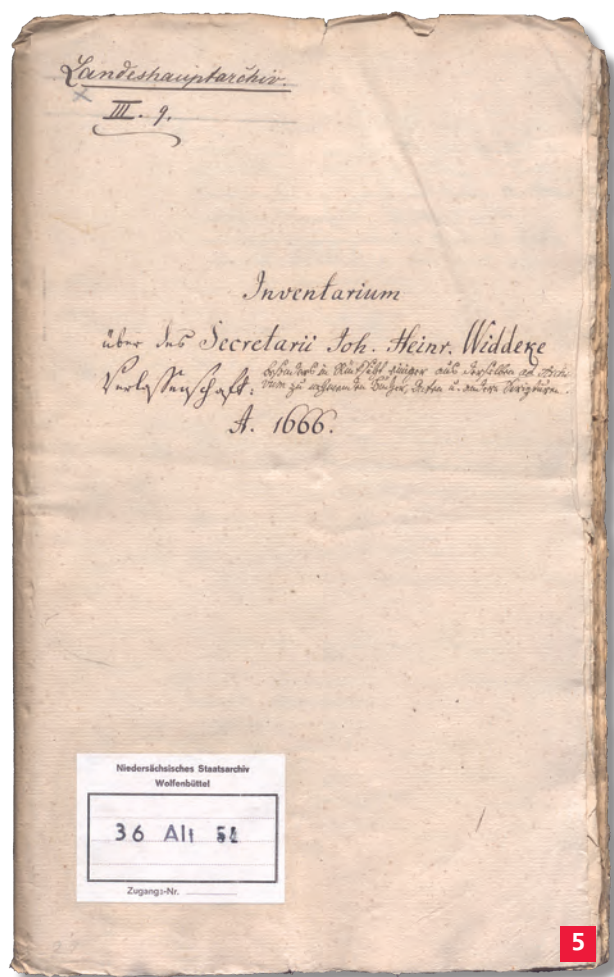 Landeshauptarchiv.
III. 9.
Inventarium
über des Secretarii Joh. Heinr. Widdeke
Verlassenschaft: besonders in Rücksicht einiger aus derselben ad Archi-
vum zu nehmenden Bücher, Acten u. andern Scripturen.
A. 1666.
Niedersächsisches Staatsarchiv
Wolfenbüttel
36 Alt
Zugangs-Nr.
5